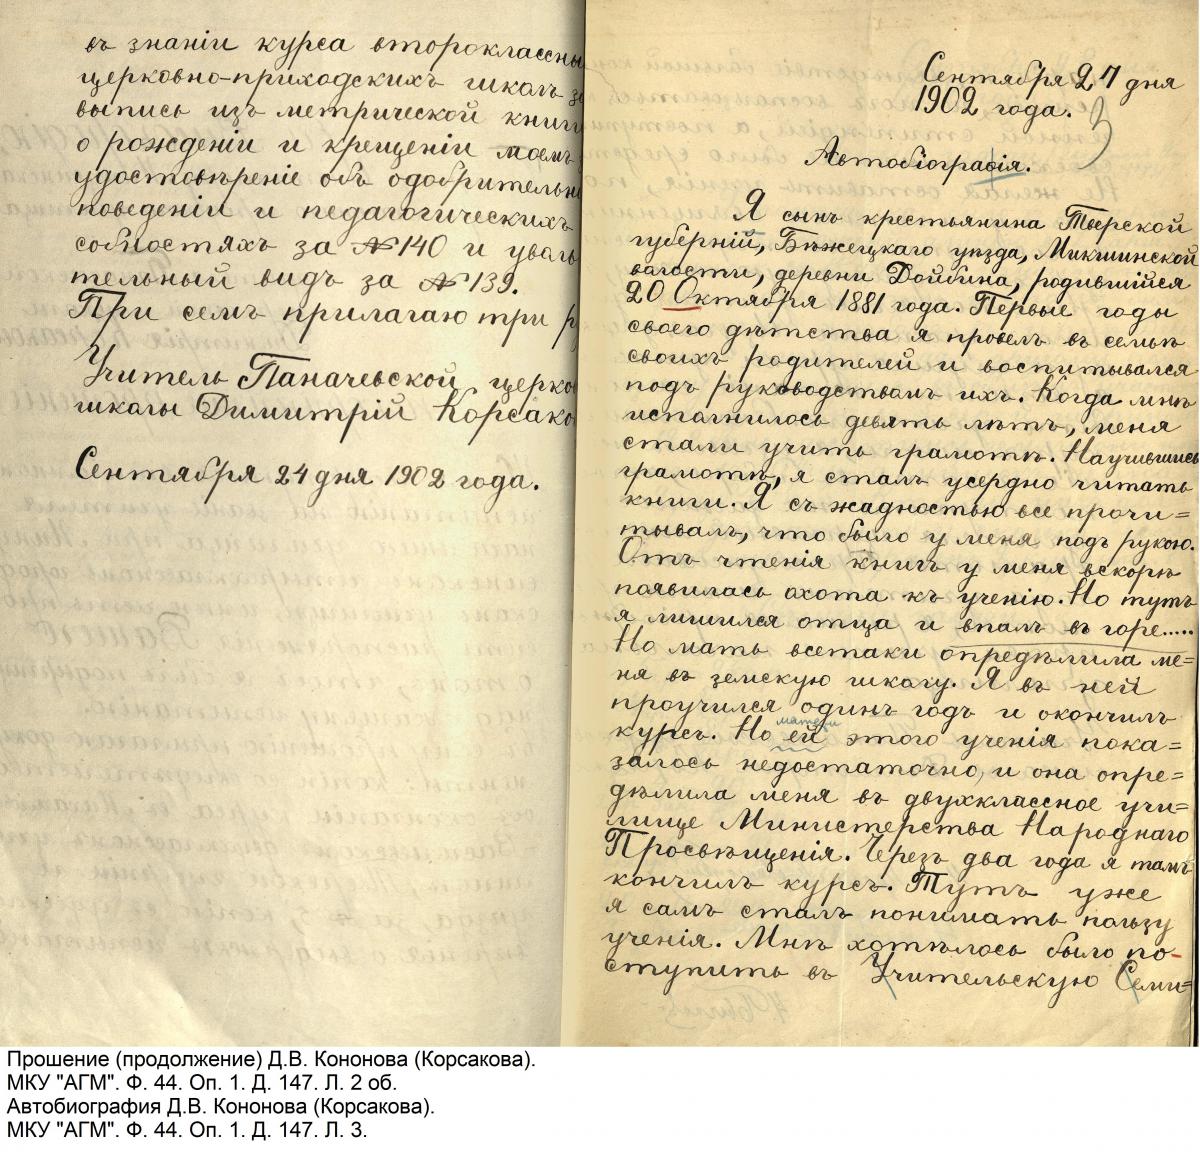 въ знаніи курса второклассны
церковно-приходскихъ школъ за
выпись изъ метрической книги
о рожденіи и крещеніи моемъ
удостовѣреніе объ одобрительн
поведеніи и педагогическихъ
собностяхъ за № 140 и уволь
тельный видъ за № 139.
При семъ прилагаю три р
Учитель Паначевской церко
школы Димитрій Корсако
Сентября 24 дня 1902 года.
Сентября 27 дня
1902 года.
Автобіографія.
Я сынъ крестьянина Тверской
губерній, Бѣжецкаго уѣзда, Микшинской
волости, деревни Дойбина, родившійся
20 Октября 1881 года. Первые годы
своего дѣтства я провелъ въ семьѣ
своихъ родителей и воспитывался
подъ руководствомъ ихъ. Когда мнѣ
исполнилось девять лѣтъ, меня
стали учить грамотѣ. Научившись
грамотѣ, я сталъ усердно читать
книги. Я съ жадностью все прочи=
тывалъ, что было у меня подъ рукою.
Отъ чтенія книгъ у меня вскорѣ
появилась охота къ ученію. Но тутъ
я лишился отца и впалъ въ горе.....
Но мать всетаки опредѣлила ме=
ня въ земскую школу. Я въ ней
проучился одинъ годъ и окончилъ
матери
курсъ. Но ей этого ученія пока=
залось недостаточно, и она опре=
дѣлила меня въ двухклассное учи=
лище Министерства Народнаго
Просвѣщенія. Черезъ два года я тамъ
кончилъ курсъ. Тутъ уже
я самъ сталъ понимать пользу
ученія. Мнѣ хотѣлось было по-
ступить въ Учительскую Семи=
Прошение (продолжение) Д.В. Кононова (Корсакова).
МКУ "АГМ". Ф. 44. Оп. 1. Д. 147. Л. 2 об.
Автобиография Д.В. Кононова (Корсакова).
МКУ "АГМ". Ф. 44. Оп. 1. Д. 147. Л. 3.